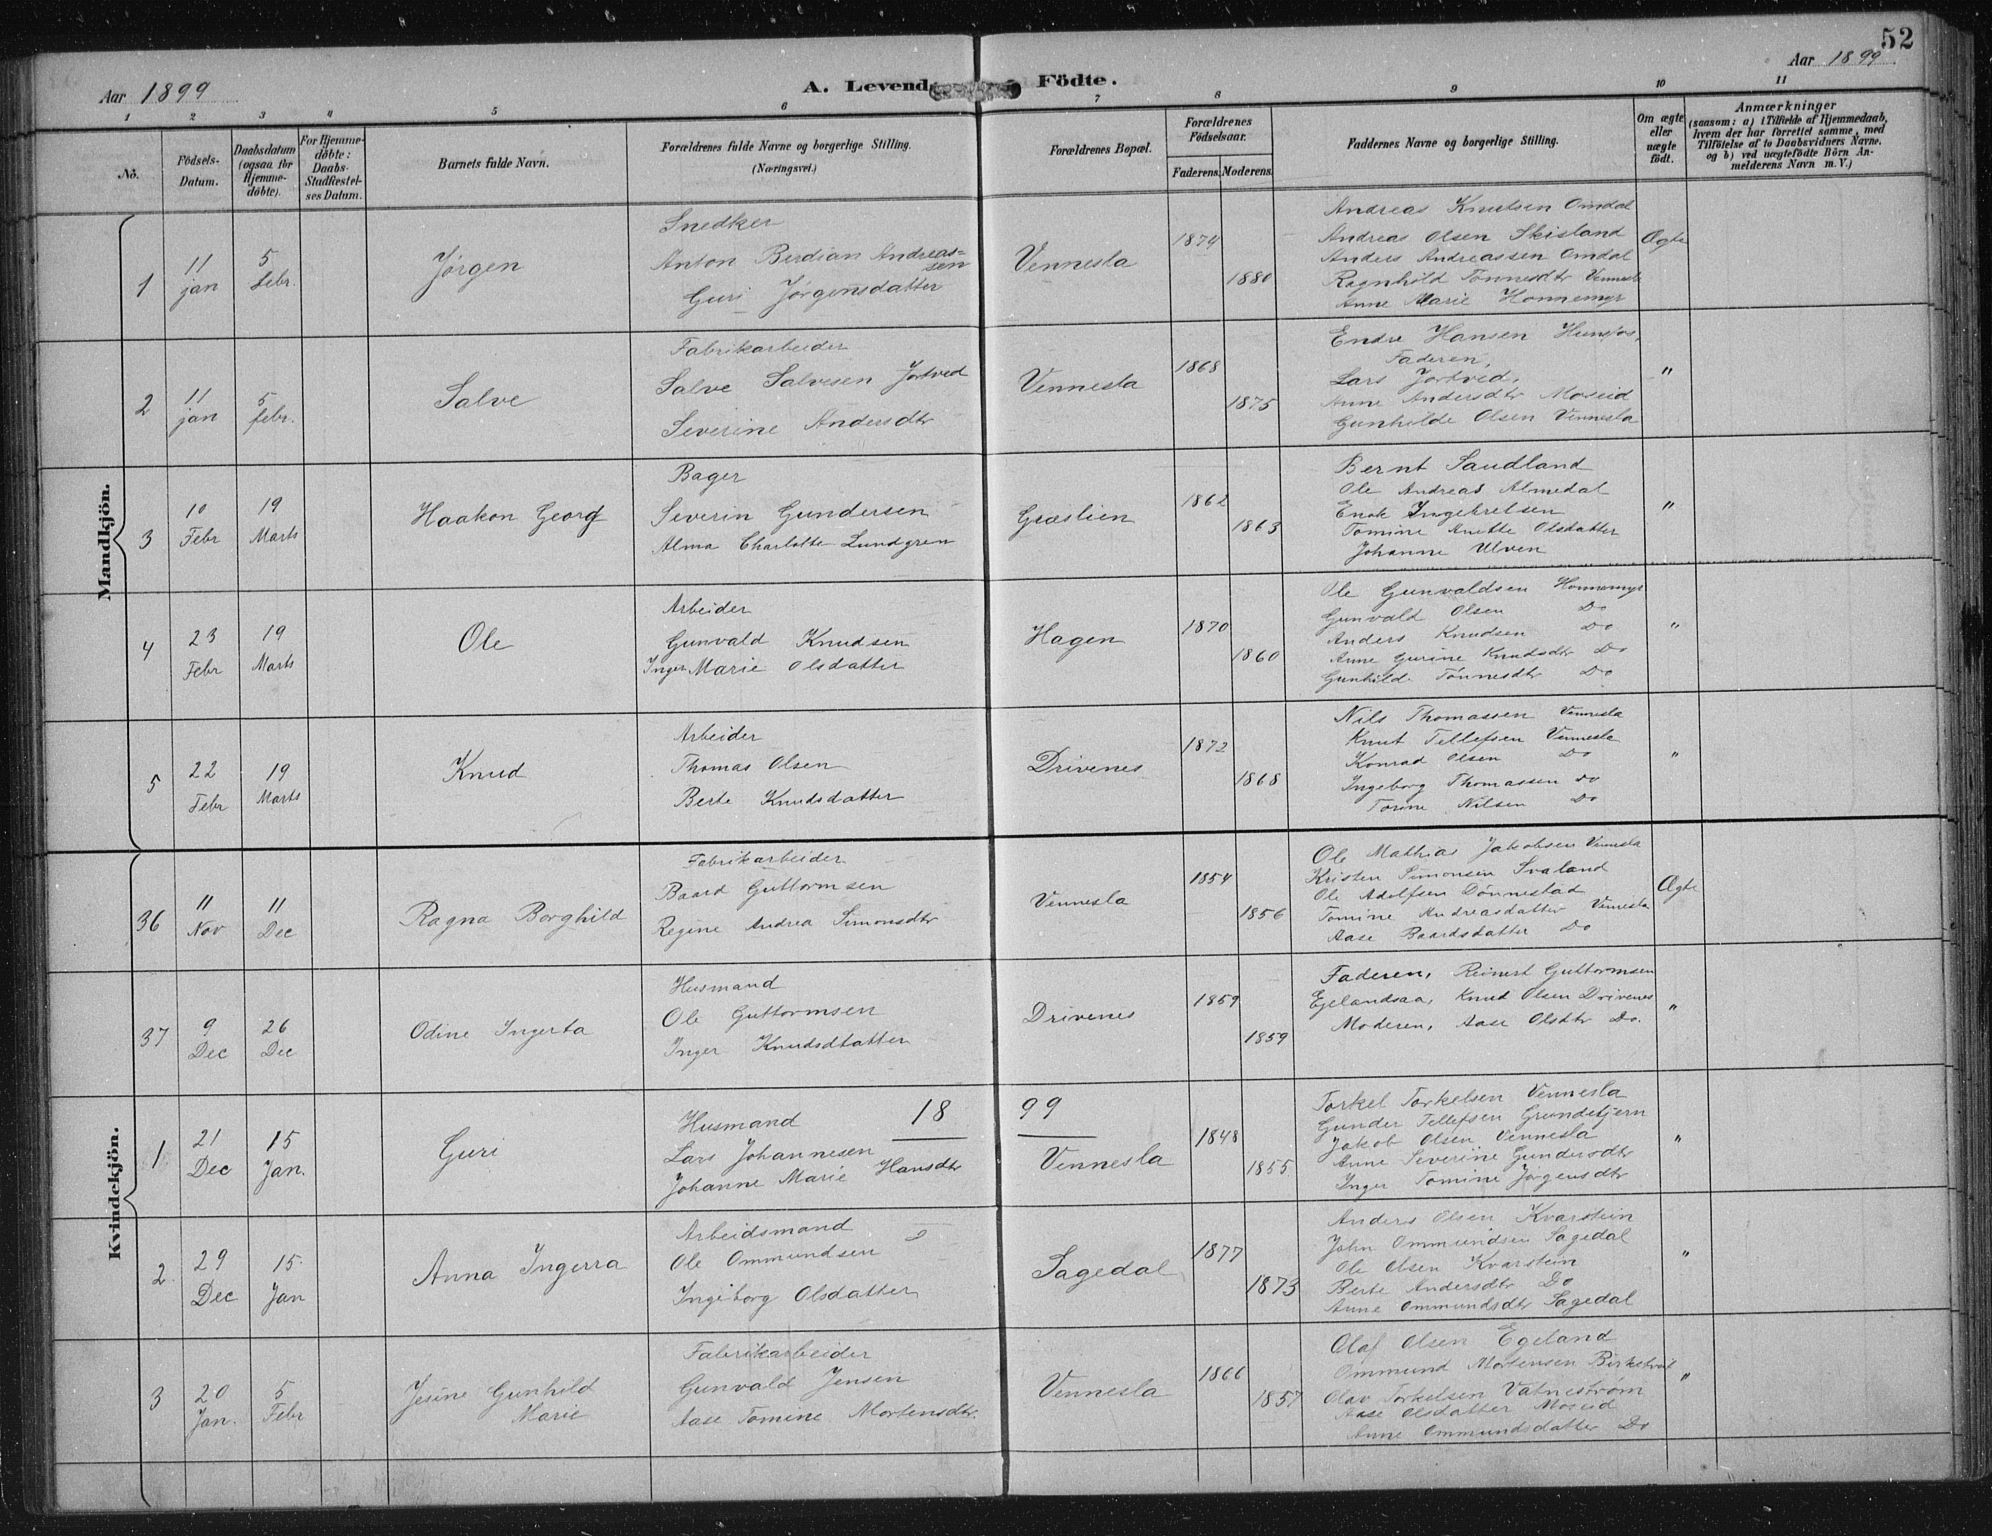 52
Aar 1899
A. Levende Födte.
Aar 1899
1 2 3 4 5 6 7 8 9 10 11
No.
Födsels-Datum.
Daabsdatum (ogsaa for Hjemme-döbte).
For Hjemme-döbte: Daabs-Stadfæstel-ses Datum.
Barnets fulde Navn.
Forældrenes fulde Navne og borgerlige Stilling.
(Næringsvei.)
Forældrenes Bopæl.
Forældrenes Födselsaar.
Faderens. Moderens.
Faddernes Navne og borgerlige Stilling.
Om ægte eller uægte födt.
Anmærkninger
(saasom: a) i Tilfælde af Hjemmedaab,
hvem der har forrettet samme, med
Tilföielse af to Daabsvidners Navne.
og b) ved uægtefödte Börn An-
melderens Navn m. V.)
Mandkjön.
1
11 jan
5 febr.
Jørgen
Snedker
Anton Berdian Andreas=
sen
Guri Jørgensdatter
Vennesla
1874
1880
Andreas Knutsen Omdal
Andreas Olsen Skisland
Anders Andreassen Omdal
Ragnhild Tønnesdtr Vennesla
Anne Marie Honnemyr
Ægte
2
11 jan
5 febr.
Salve
Fabrikarbeider
Salve Salvesen Jortved
Severine Andersdtr
Vennesla
1868
1875
Endre Hansen Hunsfos,
Faderen,
Lars Jortved,
Anne Andersdtr Moseid
Gunhilde Olsen Vennesla
"
3
10 Febr
19 Marts
Haakon Georg
Bager
Severin Gundersen
Alma Charlotte Lundgren
Græslien
1862
1863
Bernt Saudland
Ole Andreas Almedal
Enok Ingebretsen
Tomine Anette Olsdatter
Johanne Ulven
"
4
23 Febr
19 Marts
Ole
Arbeider
Gunvald Knudsen
Inger Marie Olsdatter
Hagen
1870
1860
Ole Gunvaldsen Honnemyr
Gunvald Olsen Do
Anders Knudsen Do
Anne Gurine Knudsdtr Do
Gunhild Tønnesdtr Do
"
5
22 Febr
19 Marts
Knud
Arbeider
Thomas Olsen
Berte Knudsdatter
Drivenes
1872
1868
Nils Thomassen Vennesla
Knut Tellefsen Vennesla
Konrad Olsen Do
Ingeborg Thomassen do
Torine Nilsen Do
"
Kvindekjön.
36
11 Nov
11 Dec
Ragna Borghild
Fabrikarbeider
Baard Guttormsen
Regine Andrea Simonsdtr
Vennesla
1854
1856
Ole Mathias Jakobsen Vennesla
Kristen Simonsen Svaland
Ole Adolfsen Dønnestad
Tomine Andreasdatter Vennesla
Aase Baardsdatter Do
Ægte
37
9 Dec
26 Dec
Odine Ingerta
Husmand
Ole Guttormsen
Inger Knudsdatter
Drivenes
1859
1859
Faderen, Reinert Guttormsen
Egelandsaa, Knud Olsen Drivenes
Moderen, Aase Olsdtr Do.
"
18 99
1
21 Dec
15 Jan.
Guri
Husmand
Lars Johannesen
Johanne Marie Hansdtr
Vennesla
1848
1855
Torkel Torkelsen Vennesla
Gunder Tellefsen Grundetjern
Jakob Olsen Vennesla
Anne Severine Gundersdtr
Inger Tomine Jørgensdtr
"
2
29 Dec
15 Jan
Anna Ingerra
Arbeidsmand
Ole Ommundsen
Ingeborg Olsdatter
Sagedal
1877
1873
Anders Olsen Kvarstein
John Ommundsen Sagedal
Ole Olsen Kvarstein
Berte Andersdtr Do
Anne Ommundsdtr Sagedal
"
3
20 Jan.
5 Febr
Jesine Gunhild
Marie
Fabrikarbeider
Gunvald Jensen
Aase Tomine Mortensdtr.
Vennesla
1866
1857
Olaf Olsen Egeland
Ommund Mortensen
Olav Torkelsen Vatnestrøm
Aase Olsdatter Moseid
Anne Ommundsdatter Do
"